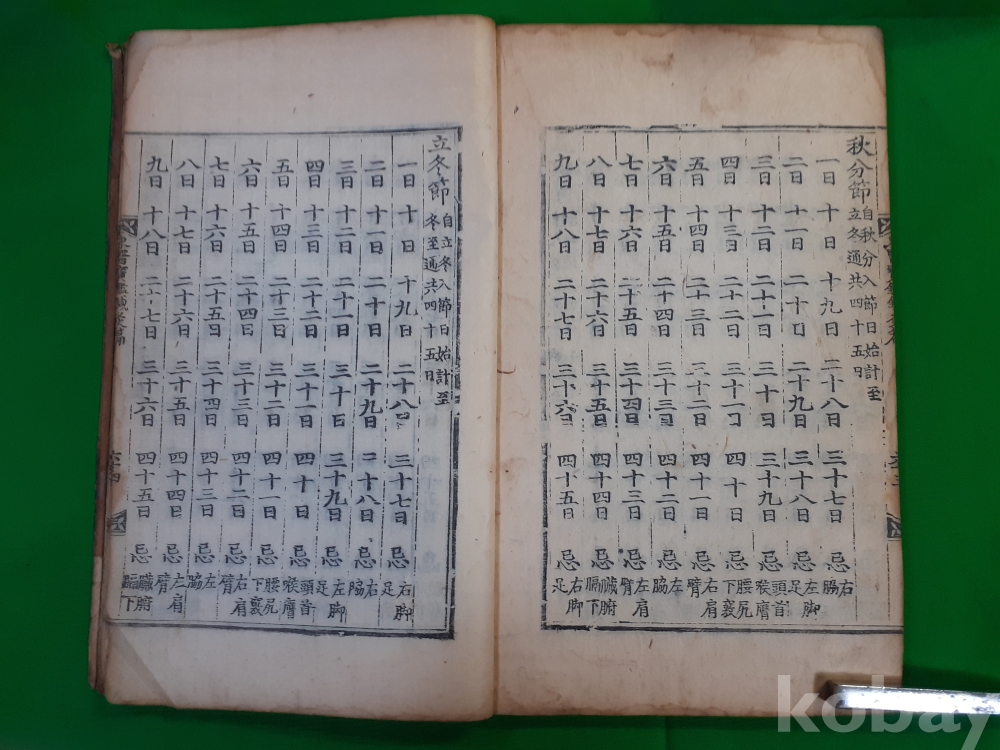 秋分節 自秋分入節日始計至
立冬通共四十五日
一日 十日 十九日 二十八日 三十七日 忌 右脇
二日 十一日 二十日 二十九日 三十八日 忌 左脚足
三日 十二日 二十一日 三十日 三十九日 忌 頭首喉膺
四日 十三日 二十二日 三十一日 四十日 忌 腰尻下竅
五日 十四日 二十三日 三十二日 四十一日 忌 右肩臂
六日 十五日 二十四日 三十三日 四十二日 忌 左脇
七日 十六日 二十五日 三十四日 四十三日 忌 左肩臂
八日 十七日 二十六日 三十五日 四十四日 忌 臟腑膈下
九日 十八日 二十七日 三十六日 四十五日 忌 右脚足
立冬節 自立冬入節日始計至
冬至通共四十五日
一日 十日 十九日 二十八日 三十七日 忌 右脚足
二日 十一日 二十日 二十九日 三十八日 忌 右脇
三日 十二日 二十一日 三十日 三十九日 忌 左脚足
四日 十三日 二十二日 三十一日 四十日 忌 頭首喉膺
五日 十四日 二十三日 三十二日 四十一日 忌 腰尻下竅
六日 十五日 二十四日 三十三日 四十二日 忌 右肩臂
七日 十六日 二十五日 三十四日 四十三日 忌 左脇
八日 十七日 二十六日 三十五日 四十四日 忌 左肩臂
九日 十八日 二十七日 三十六日 四十五日 忌 臟腑膈下
六十四
kobay